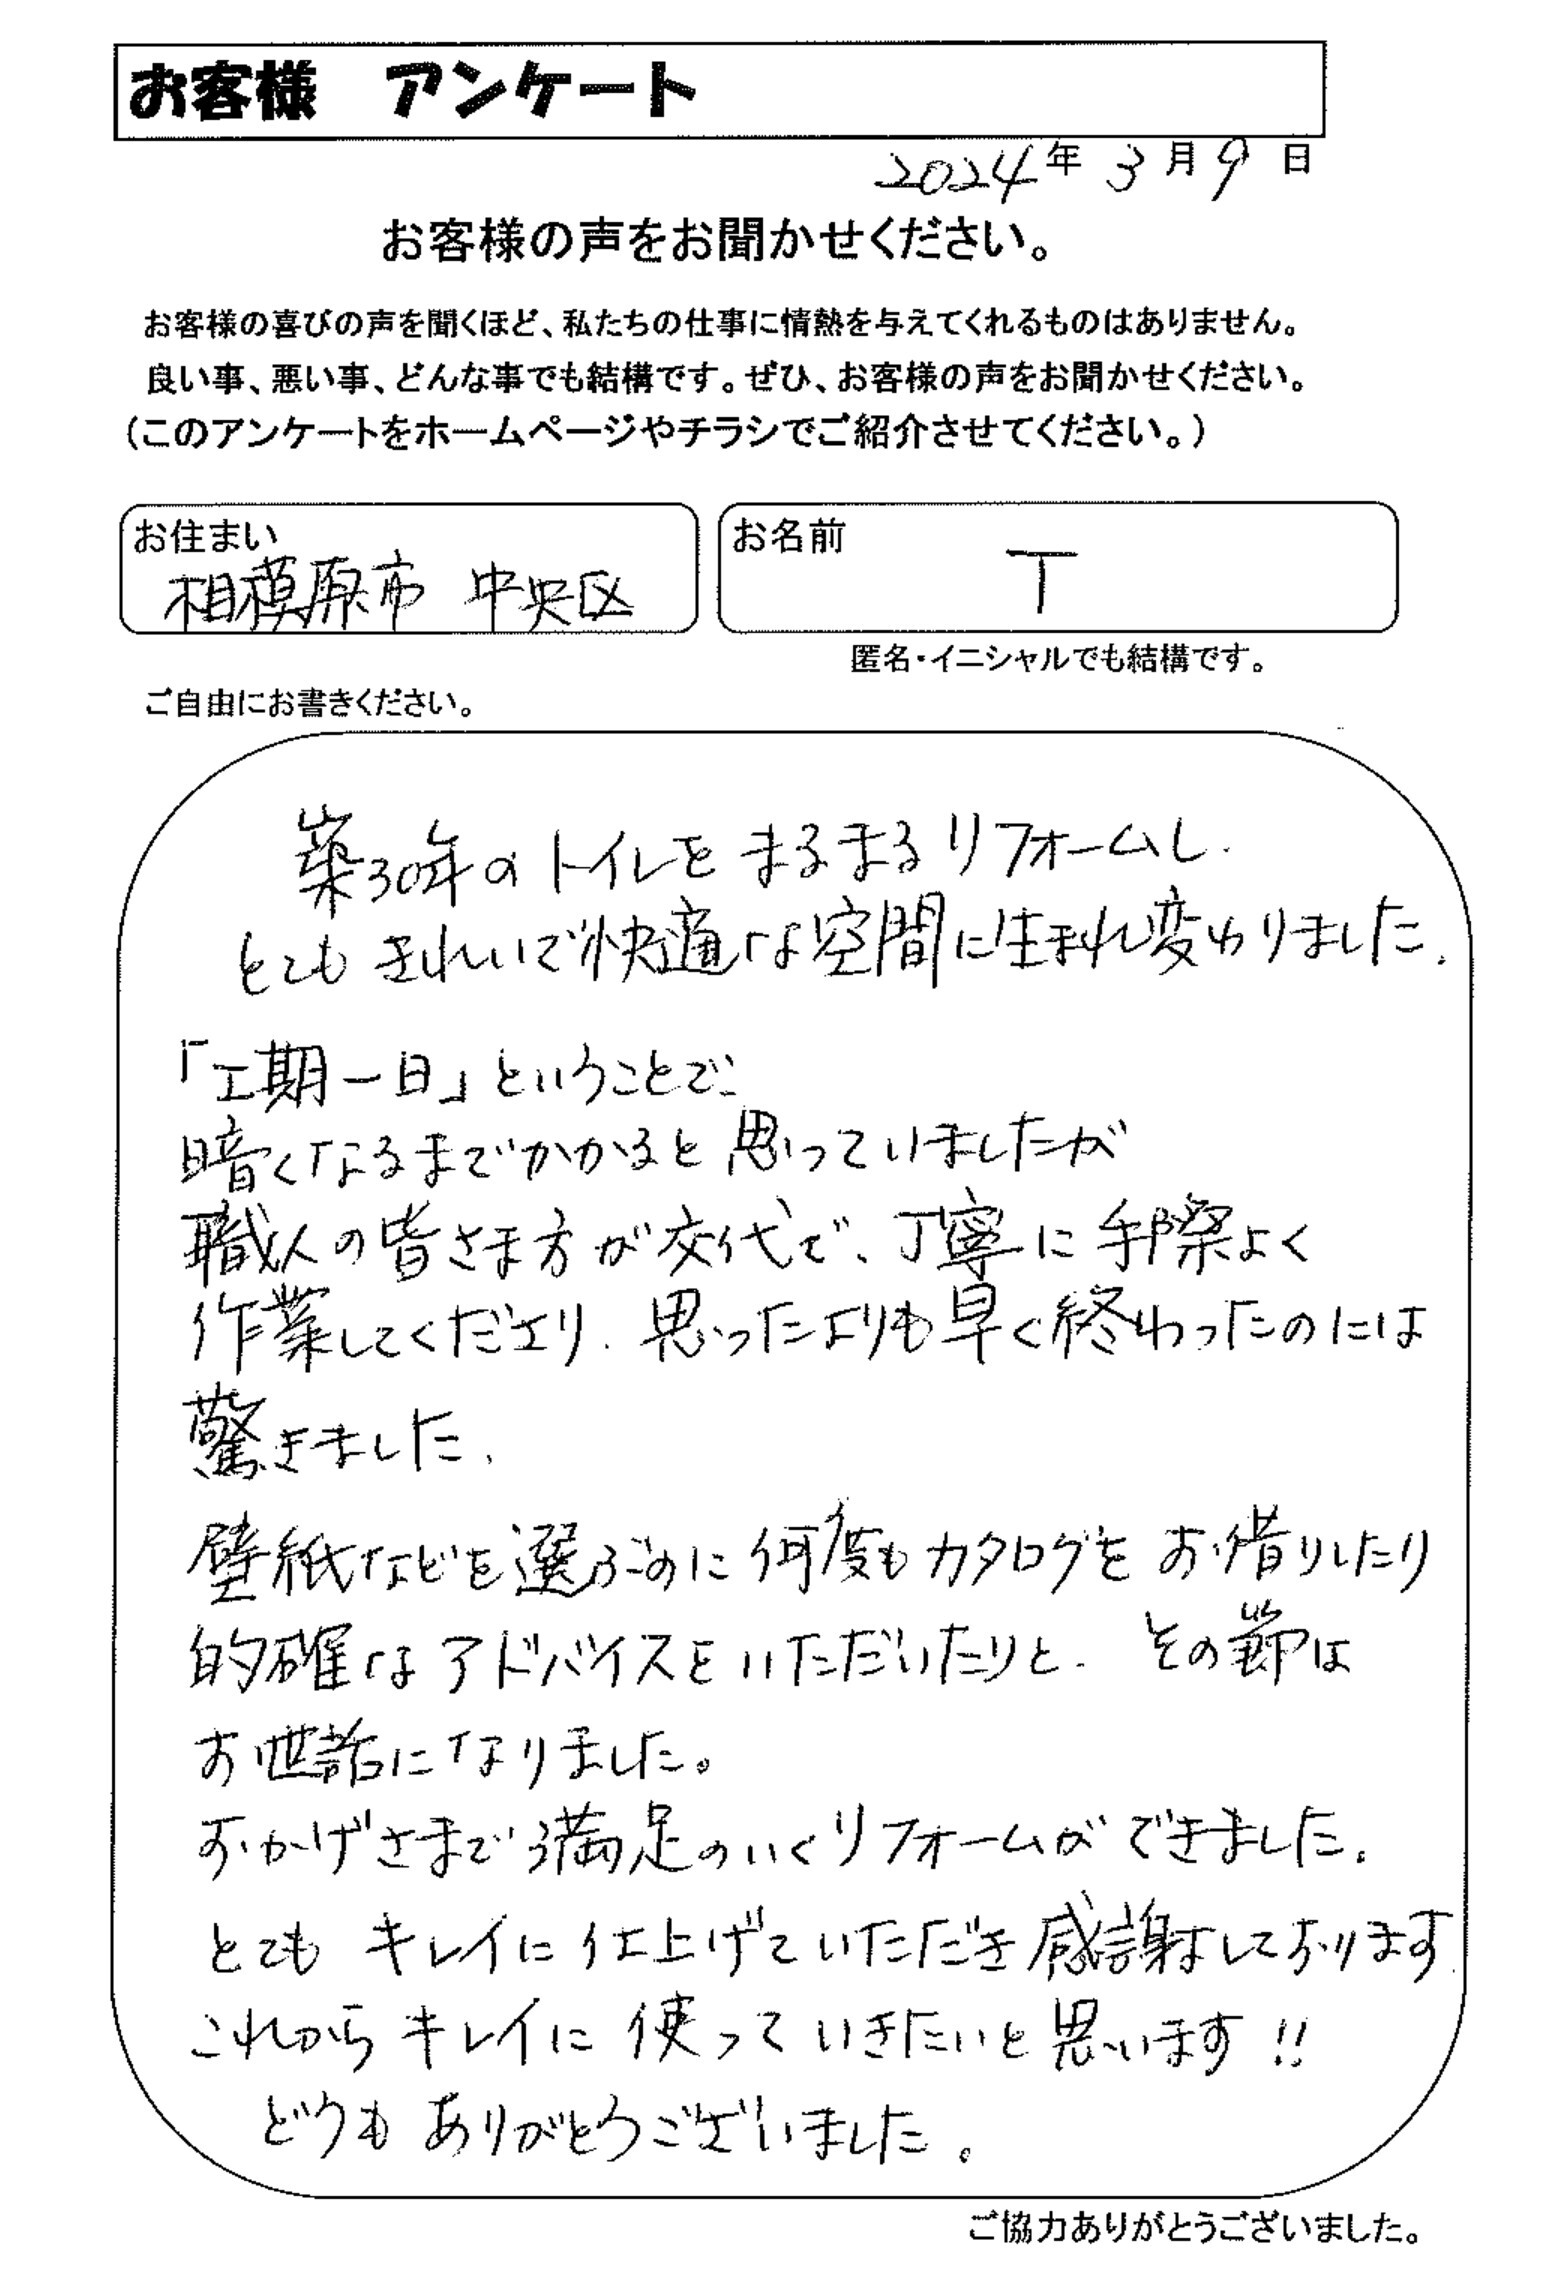 お客様 アンケート
2024年 3月 9日
お客様の声をお聞かせください。
お客様の喜びの声を聞くほど、私たちの仕事に情熱を与えてくれるものはありません。
良い事、悪い事、どんな事でも結構です。ぜひ、お客様の声をお聞かせください。
(このアンケートをホームページやチラシでご紹介させてください。)
お住まい
相模原市 中央区
お名前
T
匿名・イニシャルでも結構です。
ご自由にお書きください。
築30年の トイレを まるまる リフォームし.
とても きれいで快適な空間に生まれ変わりました.
「工期一日」ということで、
暗くなるまでかかると思っていましたが
職人の皆さま方が交代で、丁寧に手際よく
作業してくださり. 思ったよりも早く終わったのには
驚きました.
壁紙などを選ぶのに何度もカタログを お借りしたり
的確な アドバイスを いただいたりと. その節は
お世話になりました。
おかげさまで満足のいくリフォームが できました.
とても キレイに仕上げていただき感謝しております.
これから キレイに 使って いきたいと思います!!
どうも ありがとうございました。
ご協力ありがとうございました。